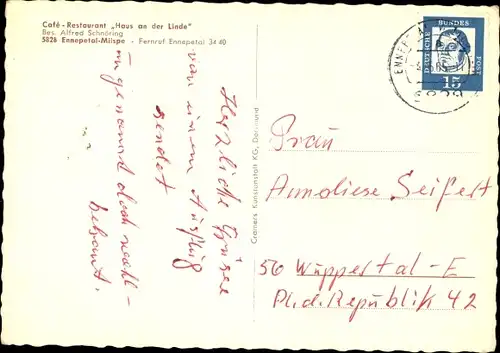 Café - Restaurant „Haus an der Linde"
Bes. Alfred Schnöring
5828 Ennepetal-Milspe - Fernruf Ennepetal 34 40
Herzliche Grüsse
von einem Ausflug
sendet
genannt doch wohl-
bekannt.
Cramers Kunstanstalt KG, Dortmund
DEUTSCHE
BUNDES
POST
15
Frau
Anneliese Seifert
56 Wuppertal-E
Pl.d.Republik 42